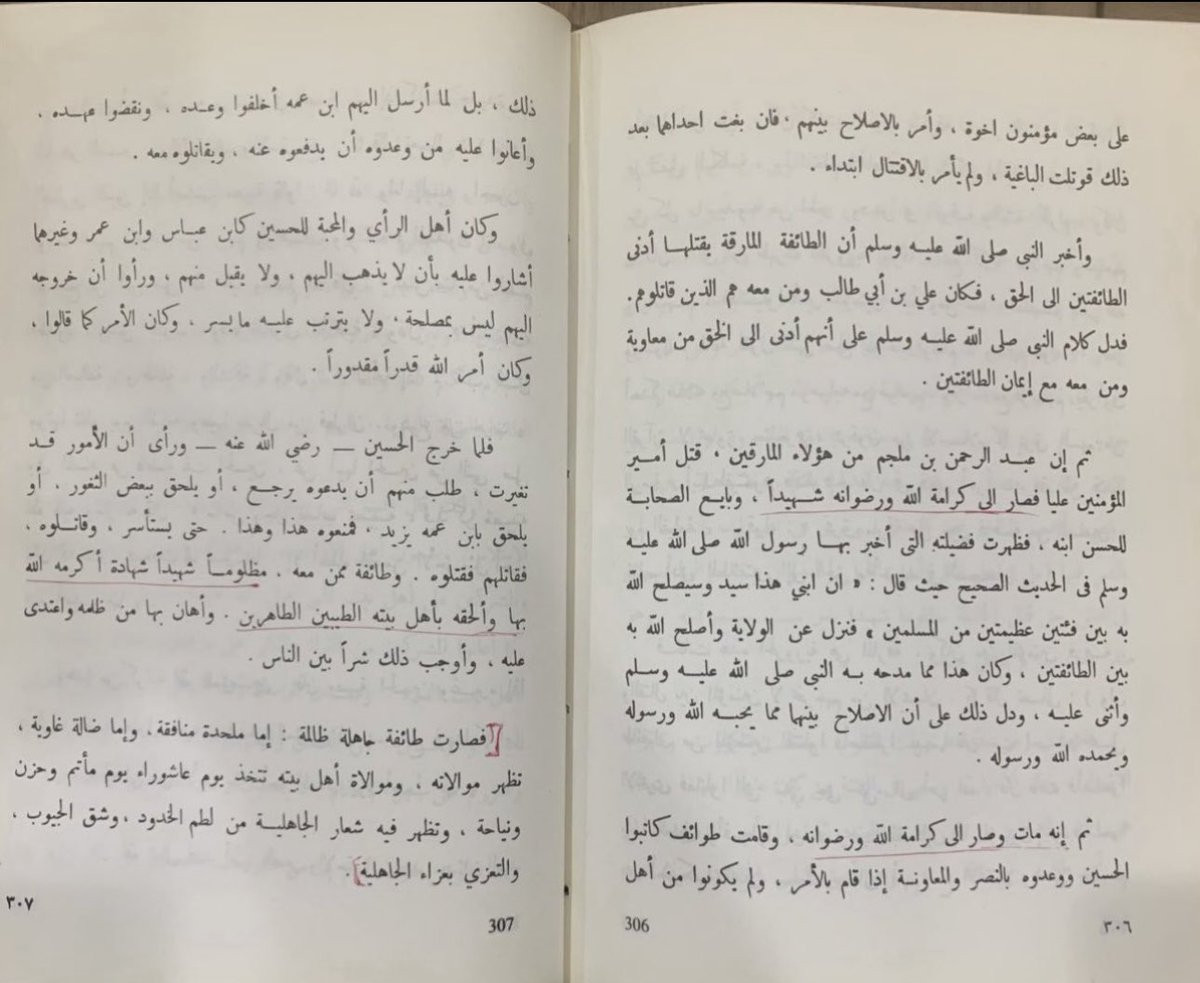 على بعض مؤمنون اخوة ، وأمر بالاصلاح بينهم ، فان بغت احداهما بعد
ذلك قوتلت الباغية ، ولم يأمر بالاقتتال ابتداء .
وأخبر النبي صلى الله عليه وسلم أن الطائفة المارقة يقتلها أدنى
الطائفتين الى الحق ، فكان علي بن أبي طالب ومن معه هم الذين قاتلوهم.
فدل كلام النبي صلى الله عليه وسلم على أنهم أدنى الى الحق من معاوية
ومن معه مع إيمان الطائفتين .
ثم إن عبد الرحمن بن ملجم من هؤلاء المارقين ، قتل أمير
المؤمنين عليا فصار الى كرامة الله ورضوانه شهيداً ، وبايع الصحابة
للحسن ابنه ، فظهرت فضيلته التى أخبر بها رسول الله صلى الله عليه
وسلم فى الحديث الصحيح حيث قال : « ان ابني هذا سيد وسيصلح الله
به بين فئتين عظيمتين من المسلمين » فنزل عن الولاية وأصلح الله به
بين الطائفتين ، وكان هذا مما مدحه به النبي صلى الله عليه وسلم
وأثنى عليه ، ودل ذلك على أن الاصلاح بينهما مما يحبه الله ورسوله
ويحمده الله ورسوله .
ثم إنه مات وصار الى كرامة الله ورضوانه ، وقامت طوائف كاتبوا
الحسين ووعدوه بالنصر والمعاونة إذا قام بالأمر ، ولم يكونوا من أهل
306 ٣٠٦
ذلك ، بل لما أرسل اليهم ابن عمه أخلفوا وعده ، ونقضوا عهده .
وأعانوا عليه من وعدوه أن يدفعوه عنه ، ويقاتلوه معه .
وكان أهل الرأي والمحبة للحسين كابن عباس وابن عمر وغيرهما
أشاروا عليه بأن لا يذهب اليهم ، ولا يقبل منهم ، ورأوا أن خروجه
اليهم ليس بمصلحة ، ولا يترتب عليه ما يسر ، وكان الأمر كما قالوا ،
وكان أمر الله قدراً مقدوراً .
فلما خرج الحسين — رضي الله عنه — ورأى أن الأمور قد
تغيرت ، طلب منهم أن يدعوه يرجع ، أو يلحق ببعض الثغور ، أو
يلحق بابن عمه يزيد ، فمنعوه هذا وهذا . حتى يستأسر ، وقاتلوه ،
فقاتلهم فقتلوه . وطائفة ممن معه ، مظلوماً شهيداً شهادة أكرمه الله
بها وألحقه بأهل بيته الطيبين الطاهرين . وأهان بها من ظلمه واعتدى
عليه ، وأوجب ذلك شراً بين الناس .
فصارت طائفة جاهلة ظالمة : إما ملحدة منافقة ، وإما ضالة غاوية ،
تظهر موالاته ، وموالاة أهل بيته تتخذ يوم عاشوراء يوم مأتم وحزن
ونياحة ، وتظهر فيه شعار الجاهلية من لطم الخدود ، وشق الجيوب ،
والتعزي بعزاء الجاهلية .
307 ٣٠٧